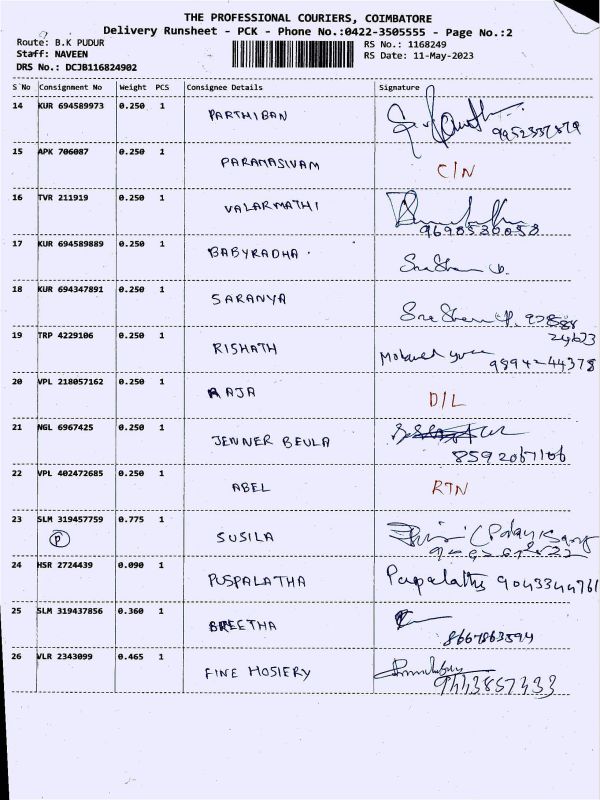 THE PROFESSIONAL COURIERS, COIMBATORE
Delivery Runsheet - PCK - Phone No.:0422-3505555 - Page No.:2
Route: B.K PUDUR
RS No.: 1168249
Staff: NAVEEN
RS Date: 11-May-2023
DRS No.: DCJB116824902
S No Consignment No Weight PCS Consignee Details Signature
14 KUR 694589973 0.250 1 PARTHIBAN
15 APK 706087 0.250 1 PARAMASIVAM C/N
16 TVR 211919 0.250 1 VALARMATHI
17 KUR 694589889 0.250 1 BABYRADHA
18 KUR 694347891 0.250 1 SARANYA
19 TRP 4229106 0.250 1 RISHATH 9894244378
20 VPL 218057162 0.250 1 RAJA D/L
21 NGL 6967425 0.250 1 JENNER BEULA
8592067106
22 VPL 402472685 0.250 1 ABEL RTN
23 SLM 319457759 0.775 1 SUSILA
P
24 HSR 2724439 0.090 1 PUSPALATHA 9043344761
25 SLM 319437856 0.360 1 BREETHA
8667863594
26 VLR 2343099 0.465 1 FINE HOSIERY
9443857333